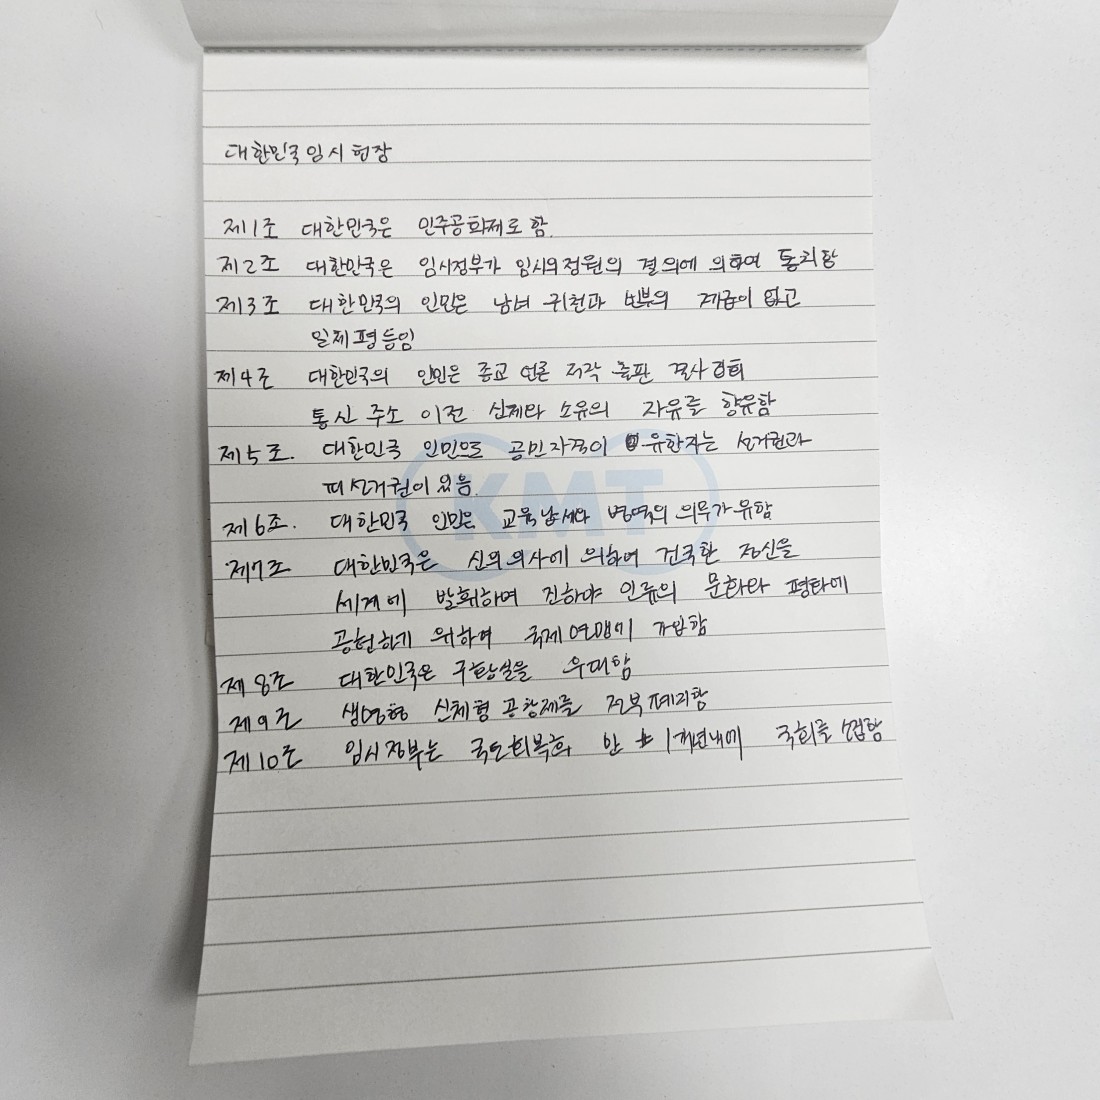 대한민국임시헌장
제1조 대한민국은 민주공화제로 함.
제2조 대한민국은 임시정부가 임시의정원의 결의에 의하여 통치함
제3조 대한민국의 인민은 남녀 귀천과 빈부의 계급이 없고
일체평등임
제4조 대한민국의 인민은 종교 언론 저작 출판 결사 집회
통신 주소 이전 신체와 소유의 자유를 향유함
제5조. 대한민국 인민으로 공민자격이 유한자는 선거권과
피선거권이 있음.
제6조. 대한민국 인민은 교육 납세와 병역의 의무가 유함
제7조 대한민국은 신의 의사에 의하여 건국한 정신을
세계에 발휘하며 진하야 인류의 문화와 평화에
공헌하기 위하여 국제연맹에 가입함
제8조 대한민국은 구황실을 우대함
제9조 생명형 신체형 공창제를 전부폐지함
제10조 임시정부는 국토회복후 만 1개년내에 국회를 소집함
KMT